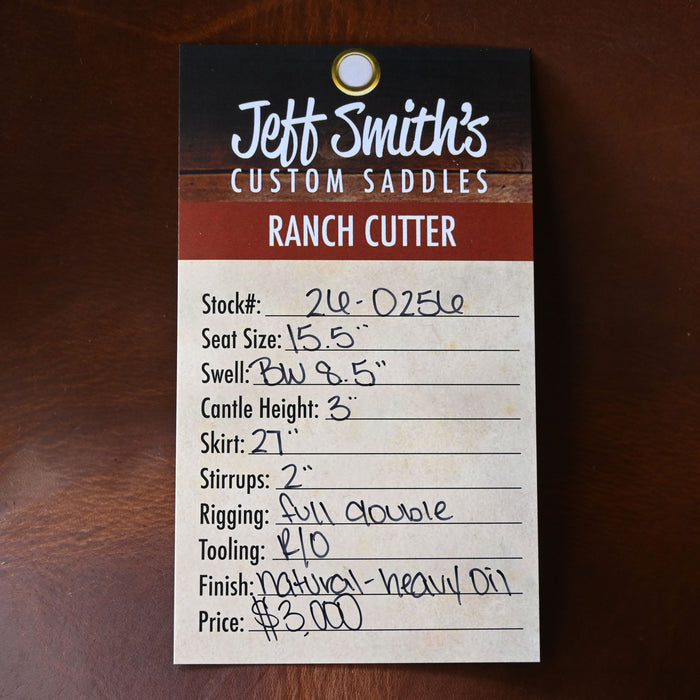 Jeff Smith's
CUSTOM SADDLES
RANCH CUTTER
Stock#: 26-0256
Seat Size: 15.5"
Swell: BW 8.5"
Cantle Height: 3"
Skirt: 27"
Stirrups: 2"
Rigging: full double
Tooling: R/O
Finish: natural-heavy oil
Price: $3,000